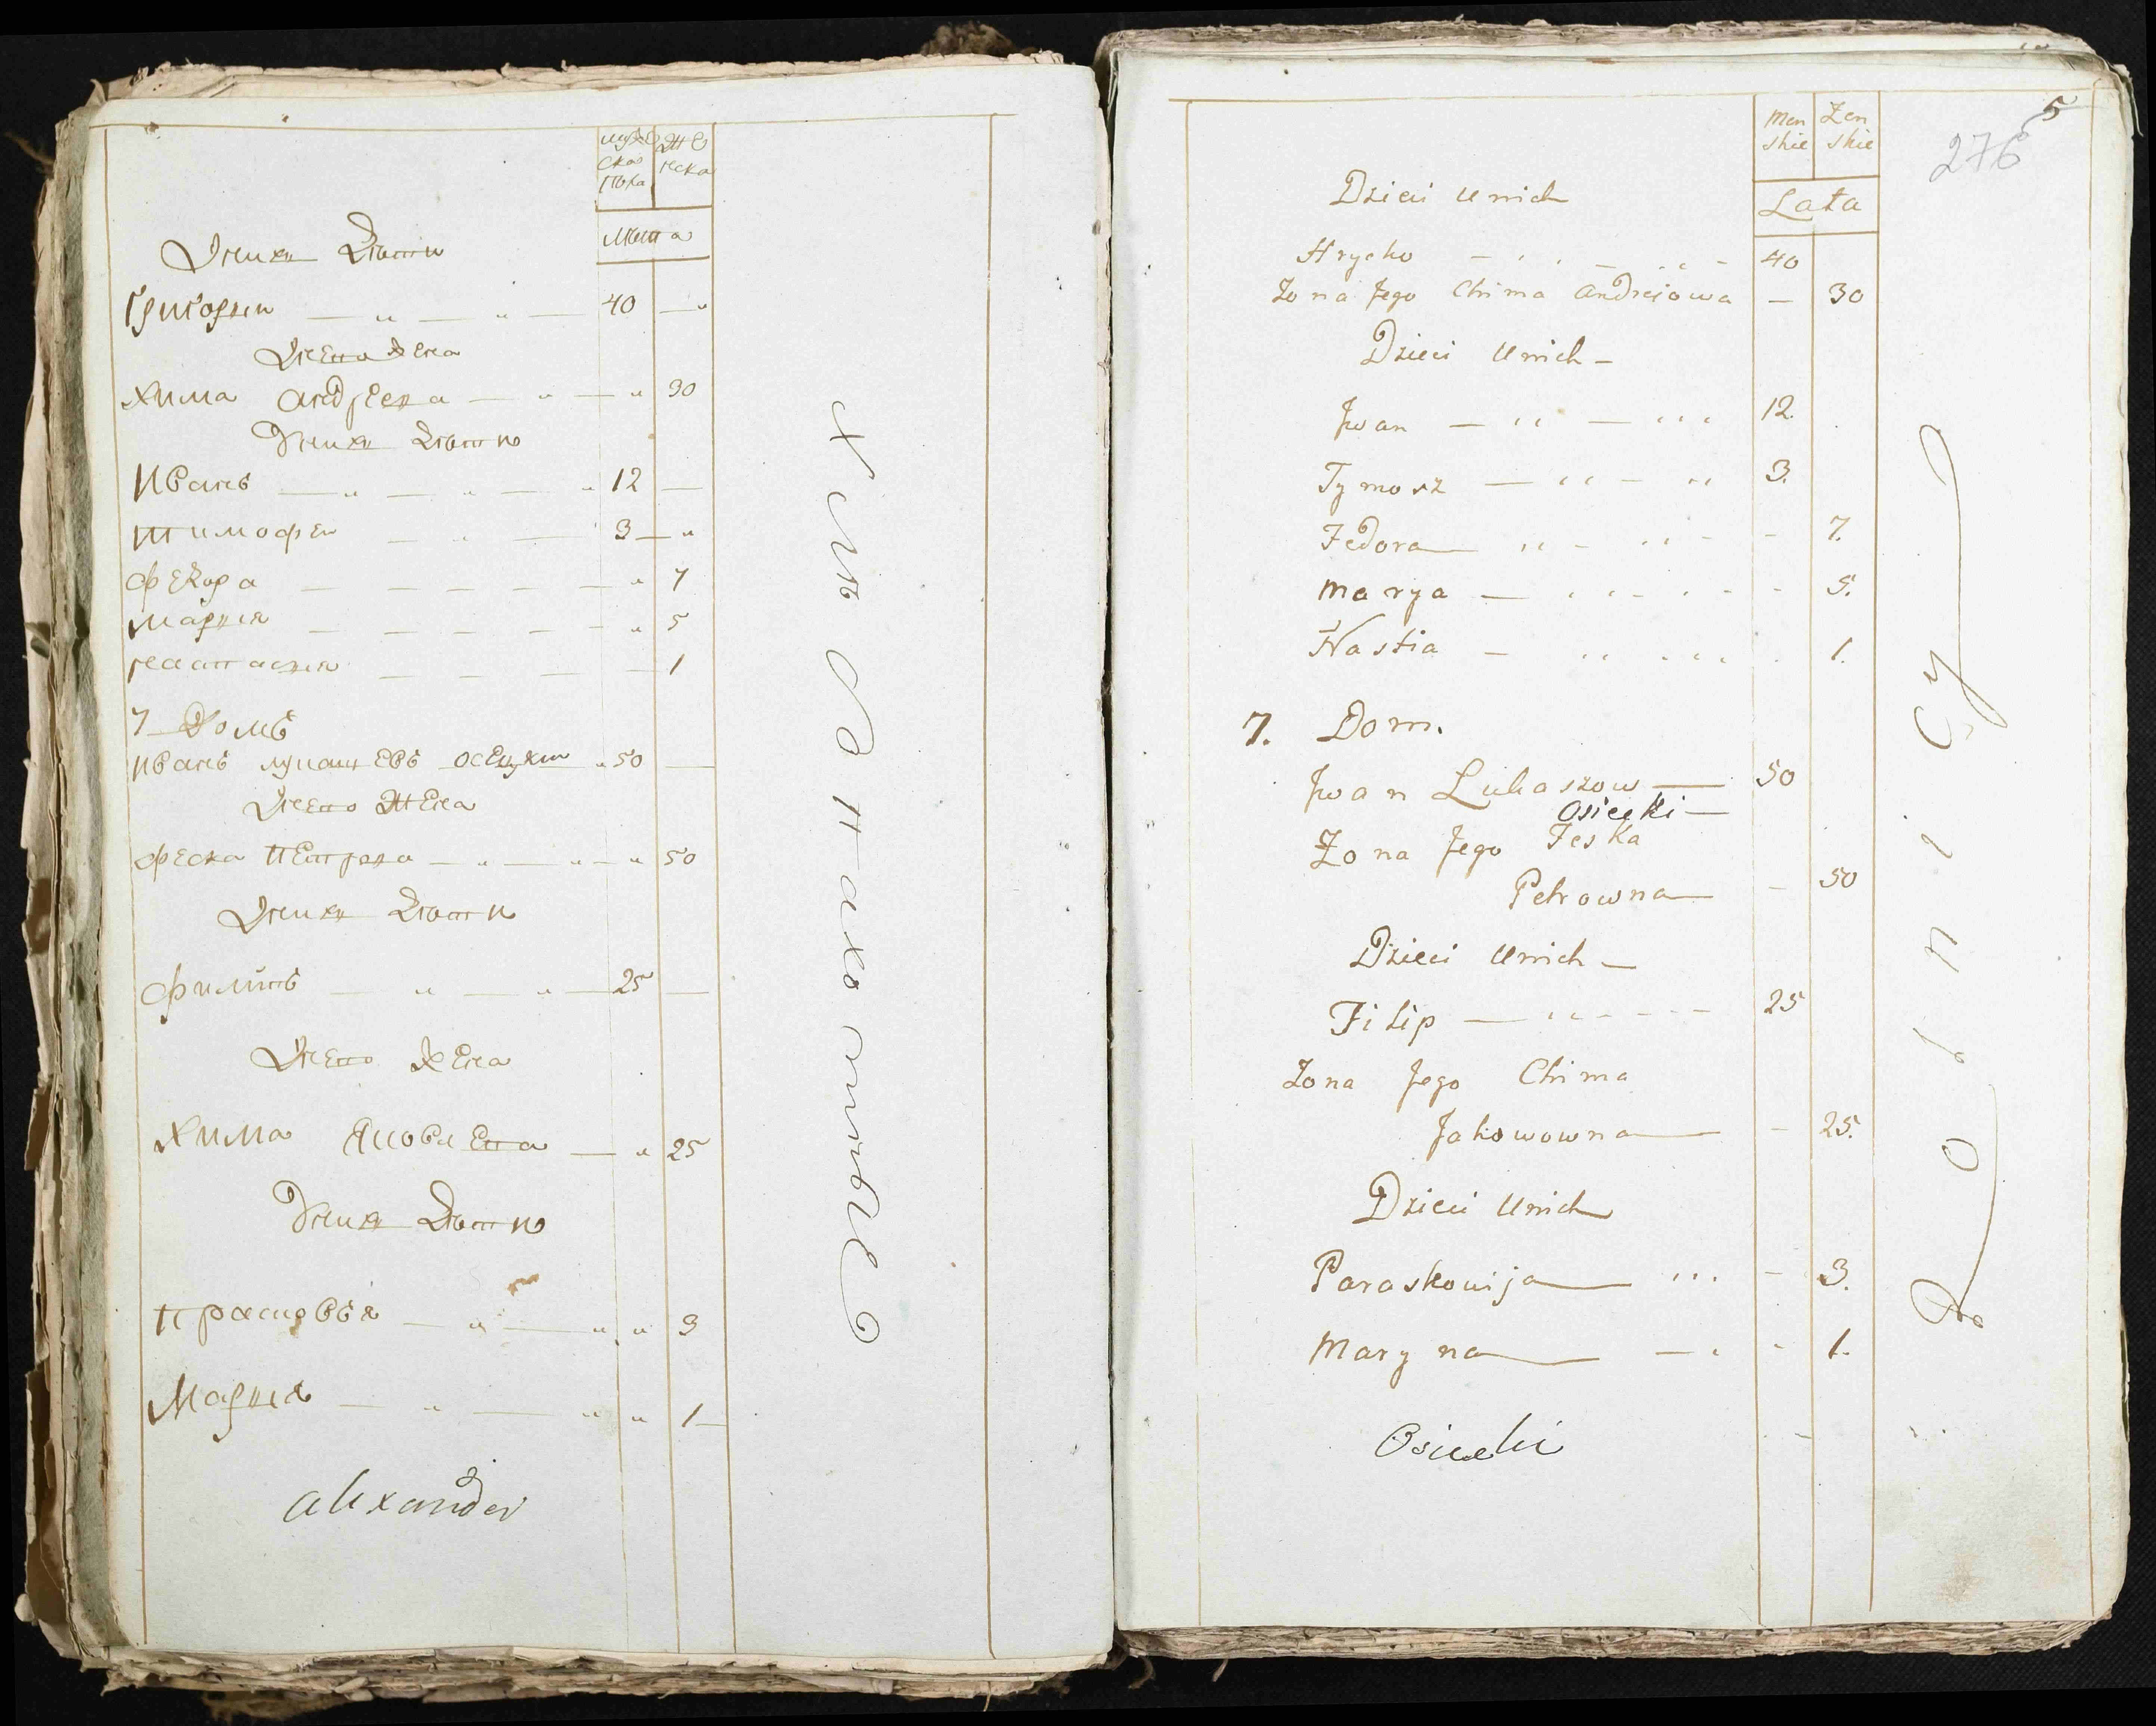 мужеска пола
женска
лета
У них дети
Григорий — „ — „ — 40 — „
У него жена
Хима Андреева — „ — „ 30
У них дети
Иванъ — „ — „ — „ 12 —
Тимофей — „ — 3 — „
Федора — — — — — „ 7
Мария — — — — — „ 5
Настасия — — — — 1
7 Домъ
Иванъ Лукашевъ Осецкий „ 50 —
У него жена
Феска Петрова — „ — „ — „ 50
У них дети
Филипъ — „ — „ — 25 —
У него жена
Хима Яковлева — „ 25
У них дети
Прасковья — „ — „ „ 3
Мария — „ — „ „ 1 —
Alexander
Хлебопашество
5
276
Men skie
Zen skie
Lata
Dzieci u nich
Hrycko 40
Zona Jego Chima Andrejowa — 30
Dzieci u nich —
Jwan — „ — 12.
Tymosz — „ — „ 3.
Fedora „ - „ - - 7.
Marya — - 5.
Nastia - 1.
7. Dom.
Jwan Lukaszow — 50
Osiecki —
Zona Jego Feska
Petrowna — 50
Dzieci u nich —
Filip — 25
Zona Jego Chima
Jakowowna - 25.
Dzieci u nich
Paraskowija - 3.
Maryna — - 1.
Osiecki
Rolnicy